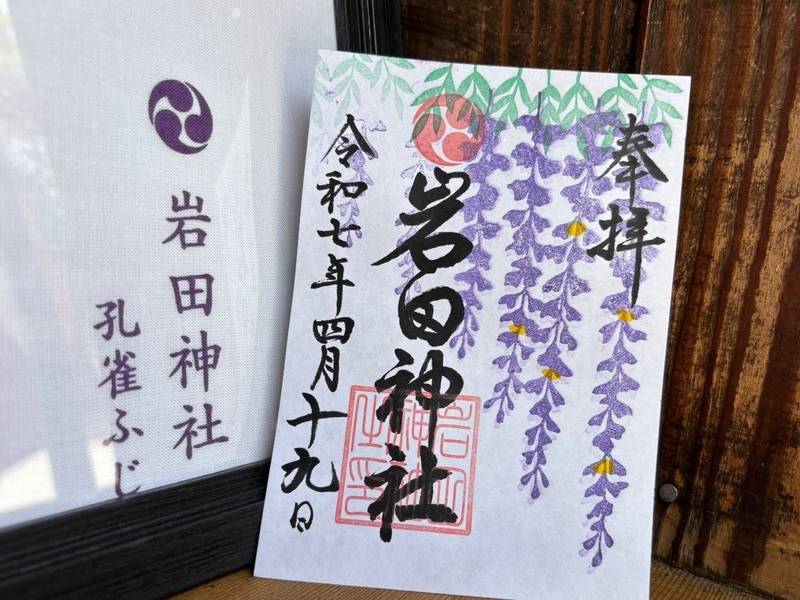 岩田神社
孔雀ふじ
奉拝
岩田神社
令和七年四月十九日